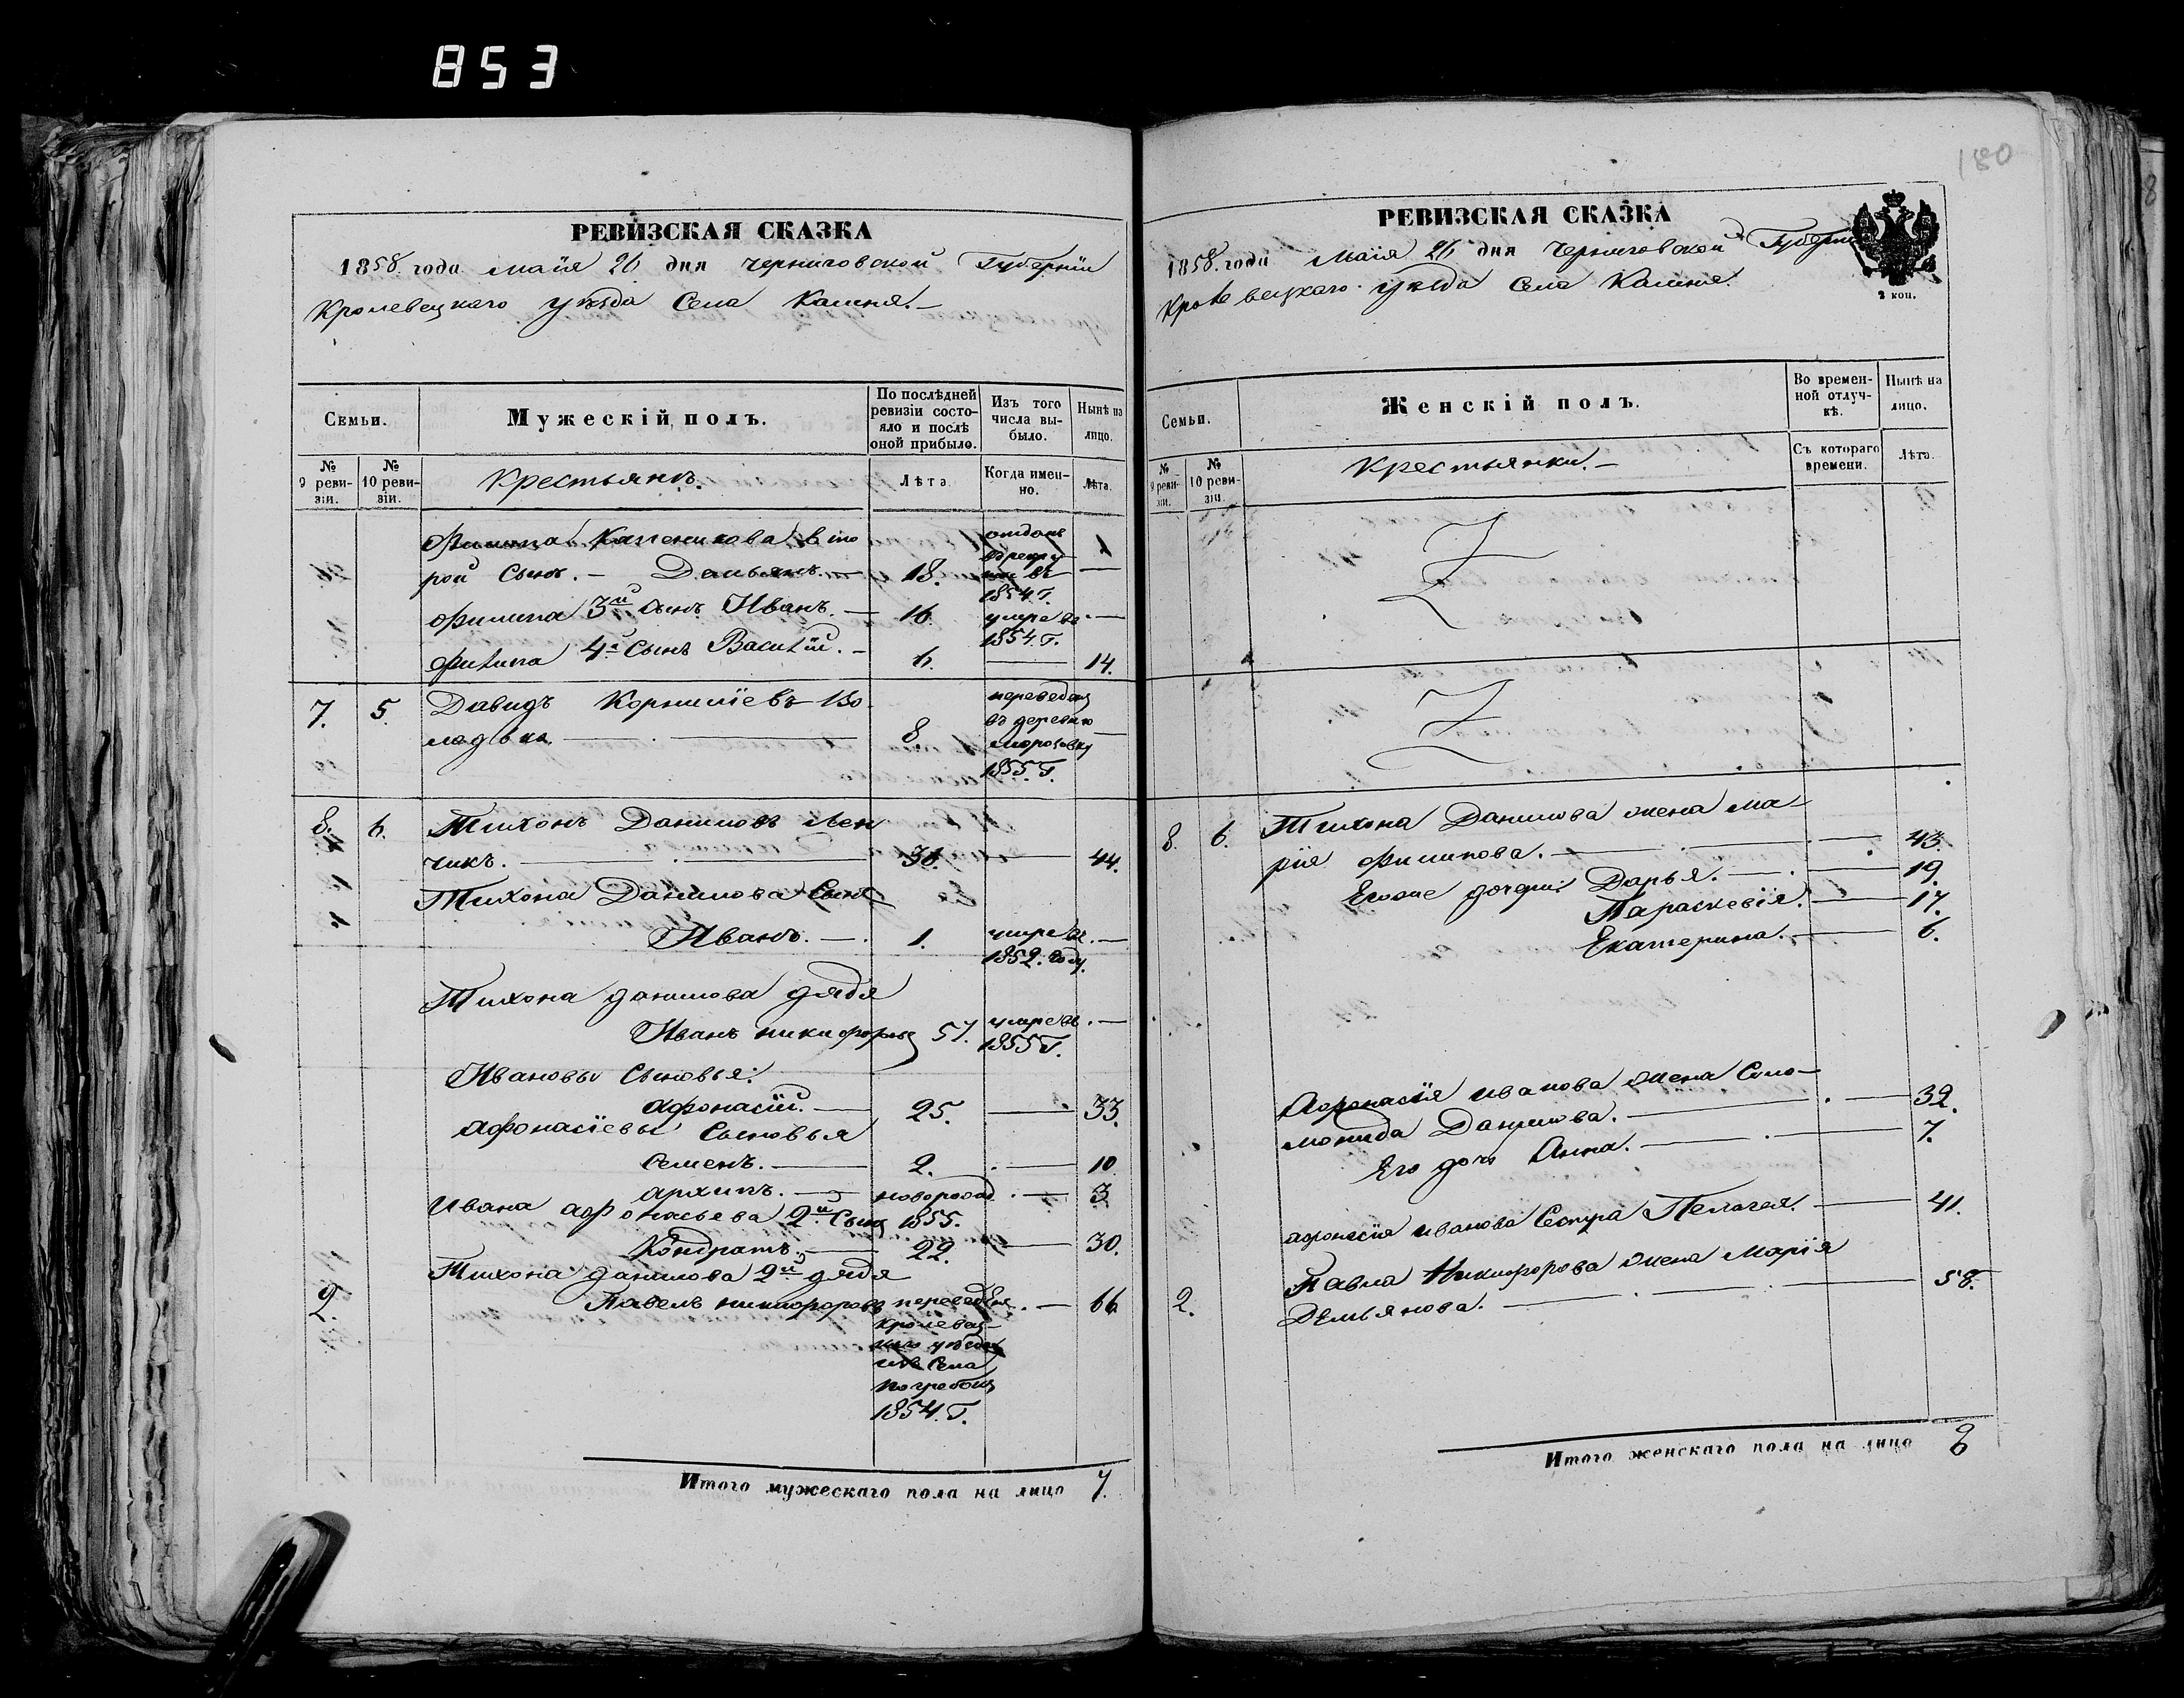 853
180
РЕВИЗСКАЯ СКАЗКА
1858. года Маія 26 дня Черниговской Губерніи
Кролевецкаго уѣзда Села Камня.
Семьи.
Мужескій полъ.
По послѣдней ревизіи состояло и послѣ оной прибыло.
Изъ того числа выбыло.
Нынѣ на лицо.
№ 9 ревизіи.
№ 10 ревизіи.
Крестьянъ.
Лѣта.
Когда именно.
Лѣта.
Филипа вто
рой Сынъ. — Демьянъ. — 18. отданъ въ рекруты въ 1854 г. —
Филипа 3й Сынъ Иванъ. — 16. умре въ 1854 г. —
Филипа 4й Сынъ Василій. — 6. — 14.
7. 5. Давидъ Корниліевъ Во
лодька — 8 въ деревню Морозовку 1855 г. —
8. 6. Тихонъ Даниловъ
чикъ. — — 44.
Тихона Данилова Сынъ
Иванъ. — 1. умре въ 1852. году. —
Тихона данилова дядя
Иванъ никифоровъ 57. умре въ 1855 г. —
Ивановы Сыновья:
Афонасій. — 25. — 33.
Афонасіевы Сыновья
Семенъ. — 2. — 10
архипъ. — новорожд. 1855. — 3
Ивана афонасьева 2й Сынъ
Кондратъ. — 22. — 30.
Тихона данилова 2й дядя
2. Павелъ никифоровъ — 66
Кролевец-
каго уѣзда
изъ Села
1854. г.
Итого мужескаго пола на лицо 7.
РЕВИЗСКАЯ СКАЗКА
1858. года Маія 26 дня Черниговской Губерніи
2 коп.
Кролевецкаго уѣзда Села Камня.
Семьи.
Женскій полъ.
Во временной отлучкѣ.
Нынѣ на лицо.
№ 9 ревизіи.
№ 10 ревизіи.
Крестьянки. —
Съ котораго времени.
Лѣта.
8. 6. Тихона Данилова жена Ма-
рія Филипова. — 43.
Егоже дочери: Дарья. — 19.
Параскевія. — 17.
Екатерина. — 6.
Афонасія иванова жена Соло-
монида Данилова. — 32.
Его дочь Анна. — 7.
афонасія иванова Сестра Пелагея. — 41.
2. Павла Никифорова жена Марія
Демьянова. — 58.
Итого женскаго пола на лицо 8